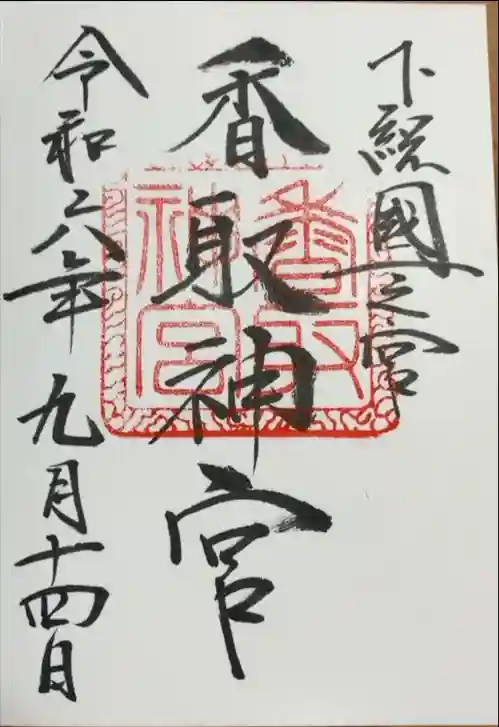 下総國一之宮
香取神宮
令和六年九月十四日
香取
神宮